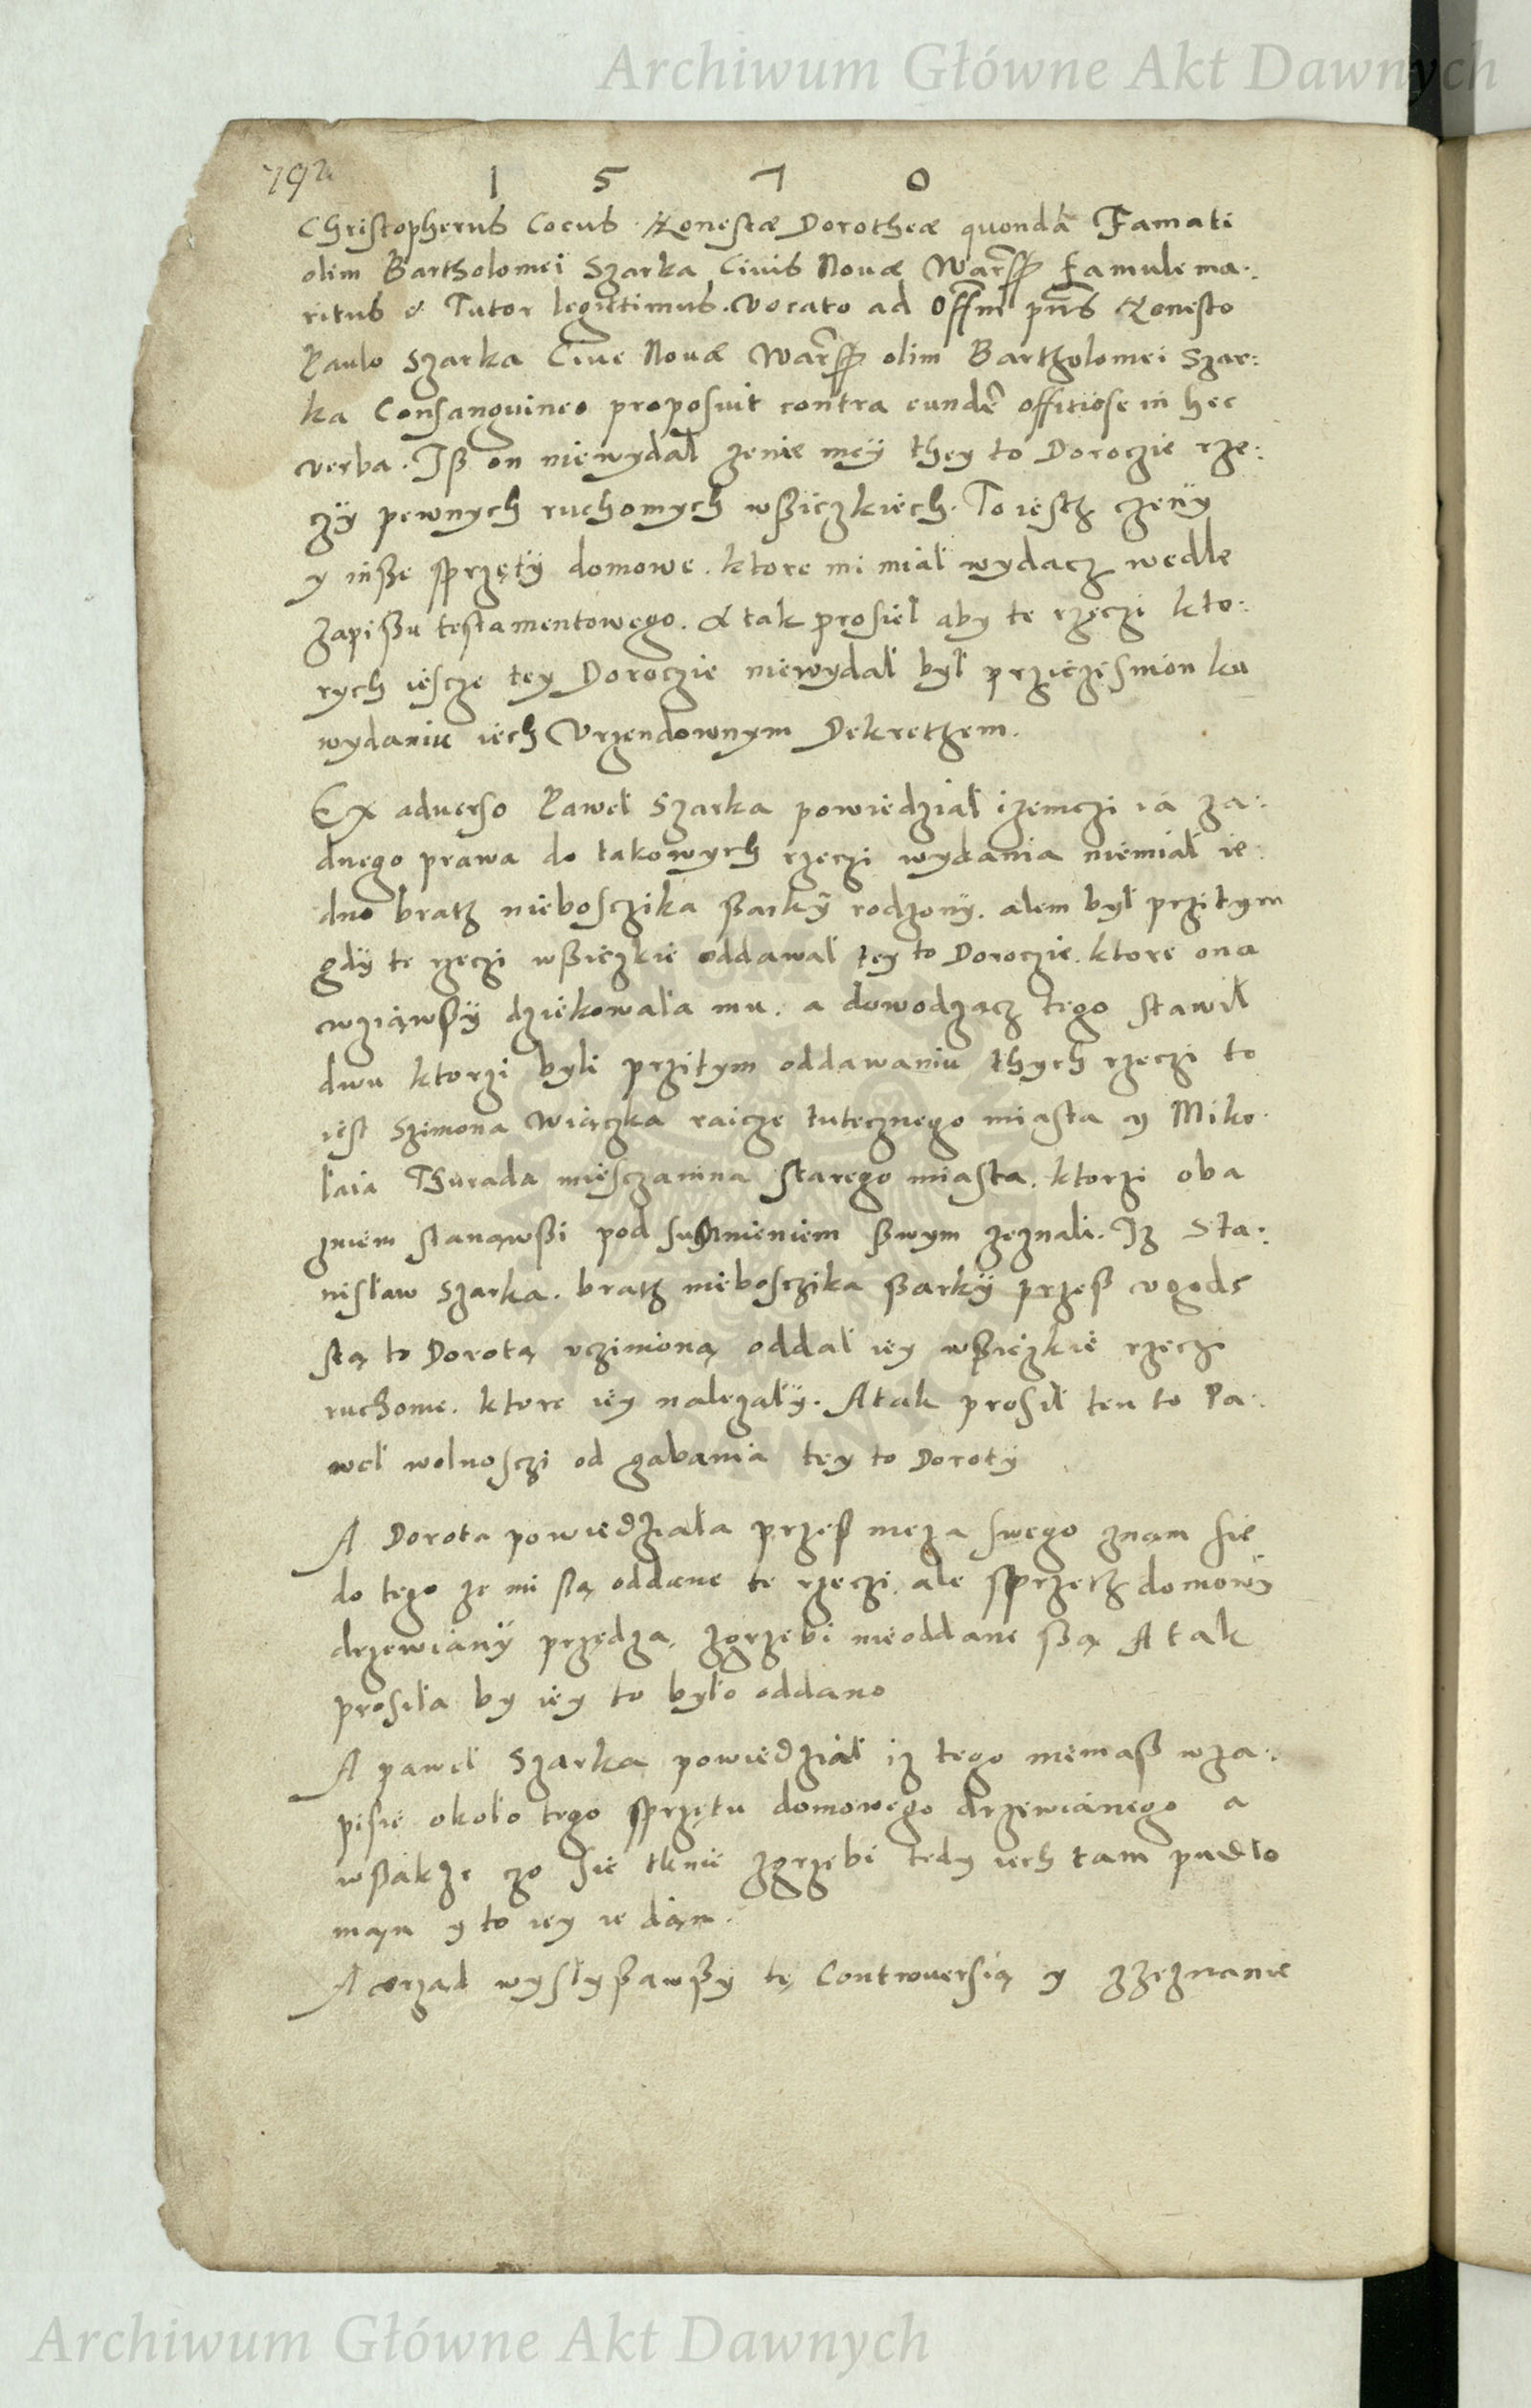 Archiwum Główne Akt Dawnych
792
1 5 7 0
Christopherus Cocus Honestæ Dorotheæ quondā Famati
olim Bartholomei Szarka Ciuis Nouæ Warss Famule ma:
ritus & Tutor legittimus. Vocato ad Offm pñs Honesto
Paulo Szarka Ciue Nouæ Warss olim Bartholomei Szar:
ka Consanguineo proposuit contra eundē offitiose in hec
verba. Iß on niewydał zenie mey they to Doroczie rze:
czÿ pewnych ruchomych wßiczkiech. To iestz czeny
y inße sprzętÿ domowe. ktore mi miał wydacz wedle
zapißu testamentowego. A tak prosieł aby te rzeczi kto:
rych iescze tey Doroczie niewydał był prziczisnion ku
wydaniu iech Vrzendownym Dekretzem.
Ex aduerso Paweł Szarka powiedział izemczi ia za:
dnego prawa do takowych rzeczi wydania niemiał ie:
dno bratz nieboszika ßarkÿ rodzonÿ. alem był przitym
gdÿ te rzeczi wßiczkie oddawał tey to Doroczie. ktore ona
wziąwßÿ dziekowała mu. a dowodzącz tego stawił
dwu ktorzi byli przitym oddawaniu thych rzeczi to
iest Szimona Wiączka raicze tutecznego miasta y Miko:
łaia Thurada miesczanina starego miasta. ktorzi oba
zniem stanąwßi pod sumnieniem ßwym zeznali. Iz Sta:
nisław Szarka. bratz niebosczika ßarkÿ przeß vgode
stą to Dorotą vczinioną oddał iey wßiczkie rzeczi
ruchome. ktore iey należałÿ. A tak prosił ten to Pa:
weł wolnosczi od gabania tey to Dorotÿ
A Dorota powiedziała przeß meza swego znam sie
do tego ze mi są oddane te rzeczi. ale sprzetz domowÿ
drzewianÿ przędza, zgrzebi nieoddane ßą A tak
prosiła by iey to było oddano
A paweł Szarka powiedział iz tego niemaß wza:
pisie około tego sprzętu domowego drzewianego a
wßakze czo sie tknie zgrzebi tedy iech tam pudło
mąm y to iey ie dąm.
A vrząd wysłyßawßy tę Controuersią y zzeznanie
Archiwum Główne Akt Dawnych